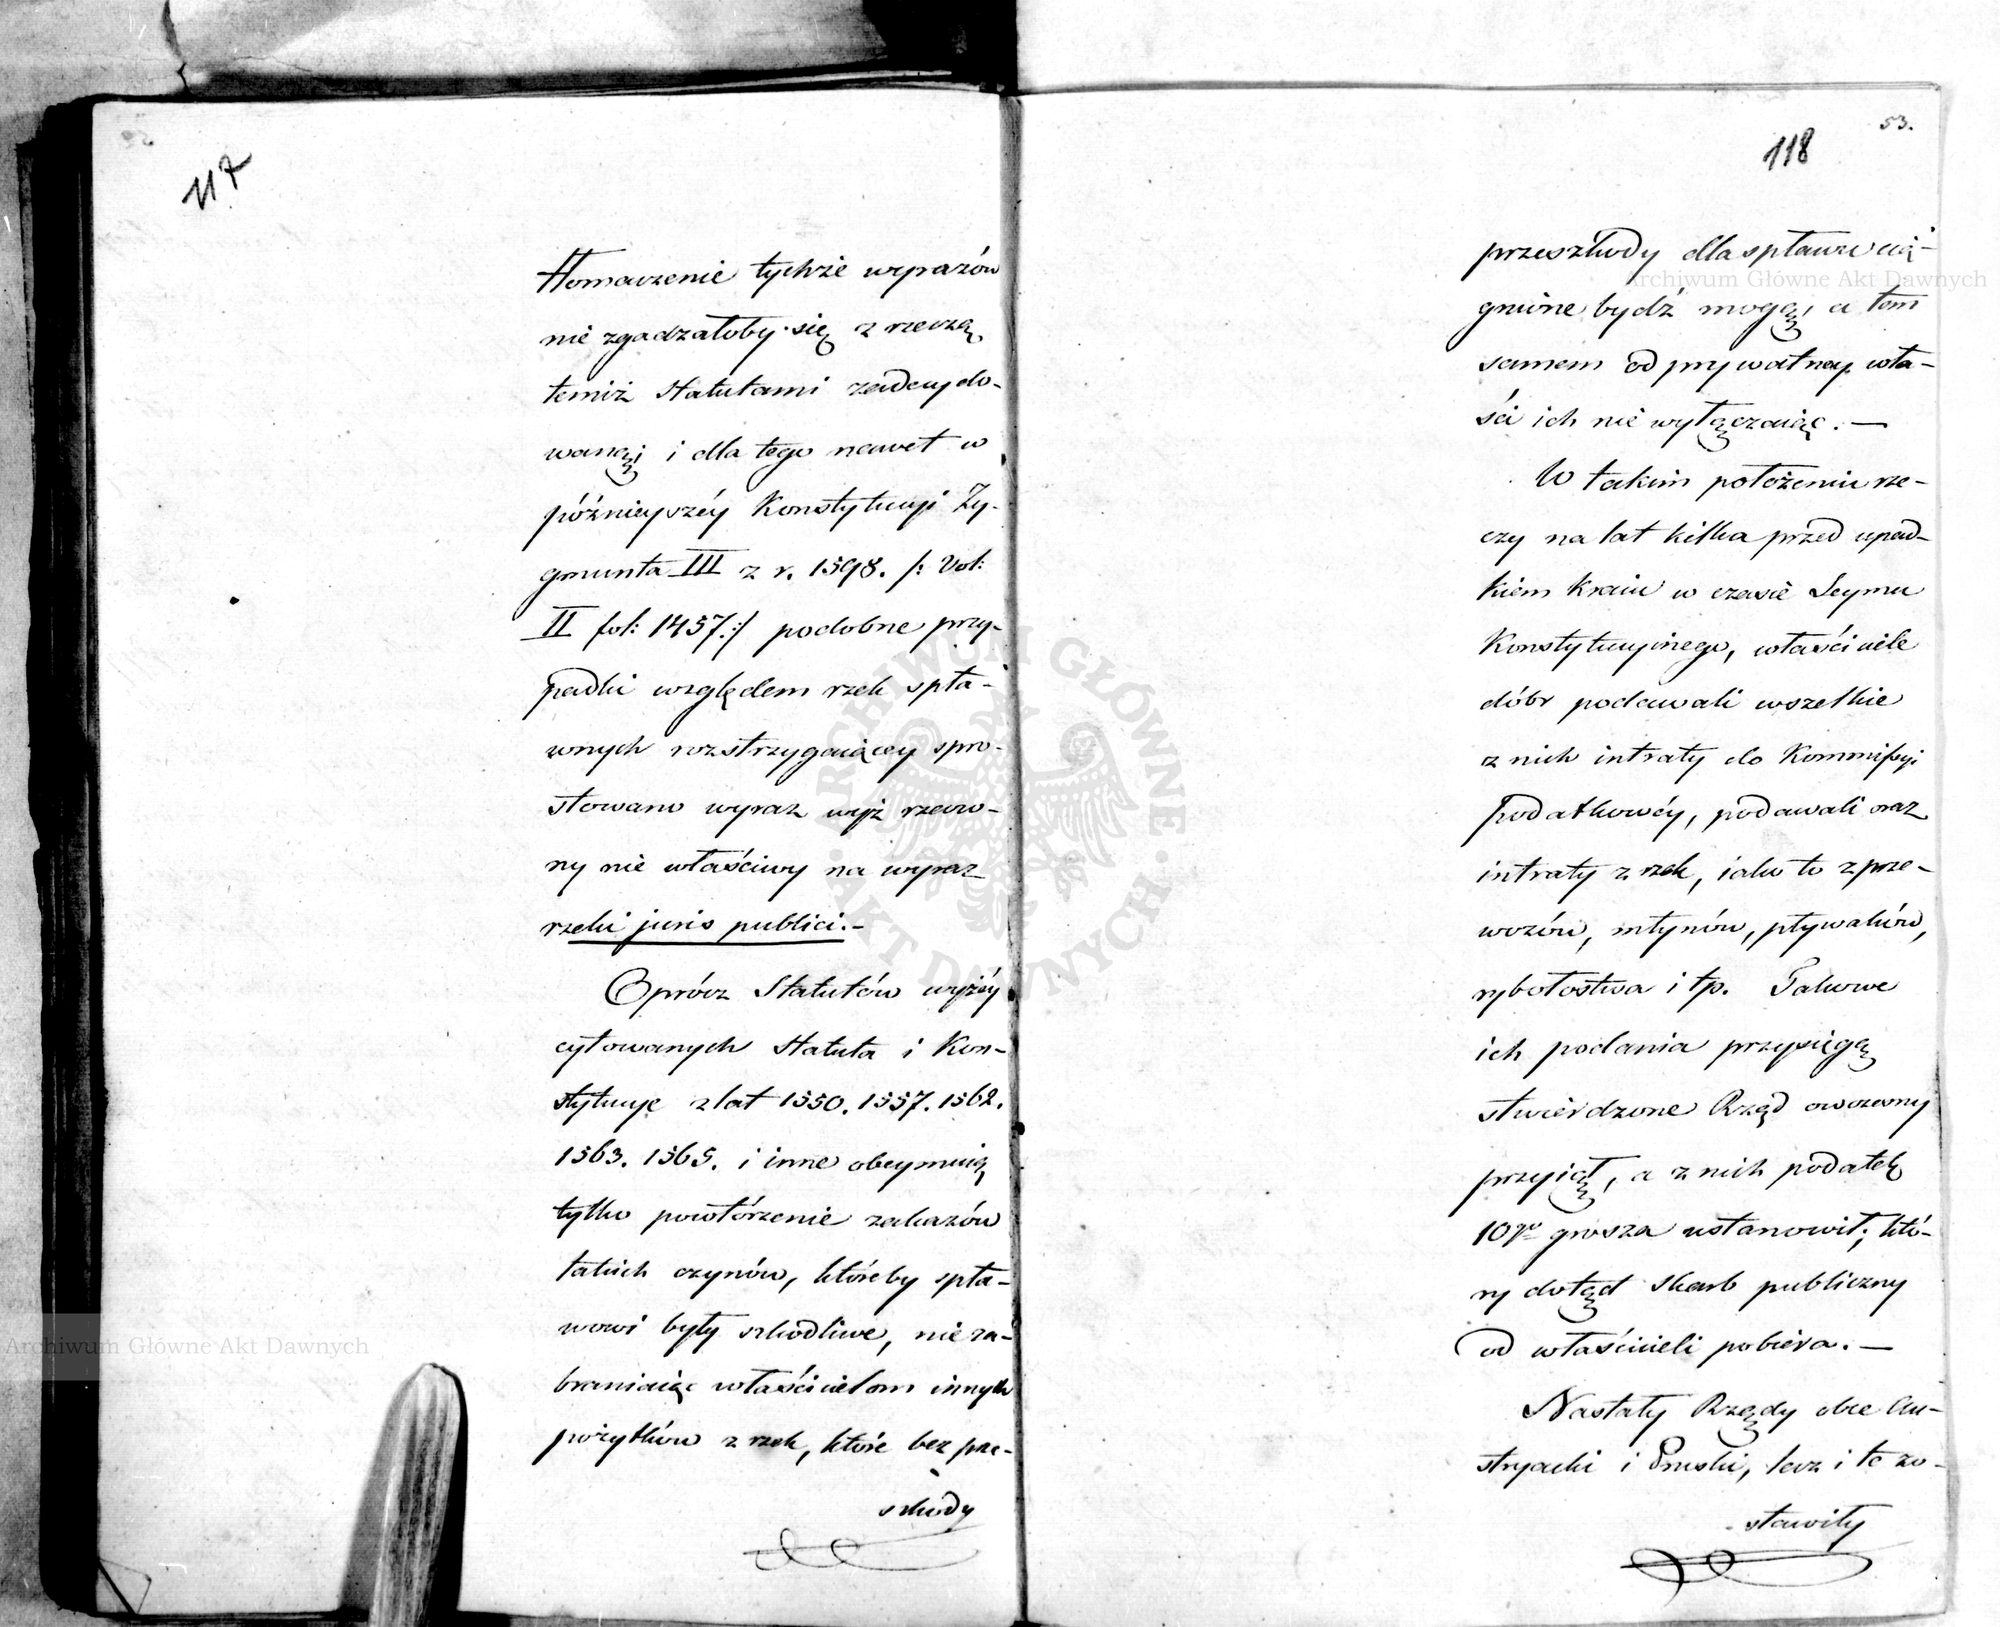 117
tłomaczenie tychże wyrazów
nie zgadzałoby się z rzeczą
temiż Statutami zadecydo-
waną; i dla tego nawet w
późnieyszéy Konstytucyi Zy-
gmunta III z r. 1598. /: Vol:
II fol: 1457. :/ podobne przy-
padki względem rzek spła-
wnych rozstrzygaiącey spro-
stowano wyraz wyż rzeczo-
ny nie właściwy na wyraz
rzeki juris publici. -
Oprócz Statutów wyżéy
cytowanych Statuta i Kon-
stytucye z lat 1550. 1557. 1562.
1563. 1565. i inne obeymuią
tylko powtórzenie zakazów
takich czynów, któreby spła-
wowi były szkodliwe, nie za-
braniaiąc właścicielom innych
pożytków z rzek, które bez prze-
szkody
53.
118
przeszkody dla spławu cią-
gnione bydź mogą, a tem
samem od prywatney wła-
ści ich nie wyłączaiąc. —
W takim położeniu rze-
czy na lat kilka przed upad-
kiem Kraiu w czasie Seymu
Konstytucyinego, właściciele
dóbr podawali wszelkie
z nich intraty do Kommissyi
Podatkowéy, podawali oraz
intraty z rzek, iako to z prze-
wozów, młynów, pływaków,
rybołostwa i tp. Takowe
ich podania przysięgą
stwierdzone Rząd owczesny
przyiął, a z nich podatek
10go grosza ustanowił; któ-
ry dotąd Skarb publiczny
od właścicieli pobiera. —
Nastały Rządy obce Au-
stryacki i Pruski, lecz i te zo-
stawiły
Archiwum Główne Akt Dawnych
Archiwum Główne Akt Dawnych
ARCHIWUM GŁÓWNE · AKT DAWNYCH ·